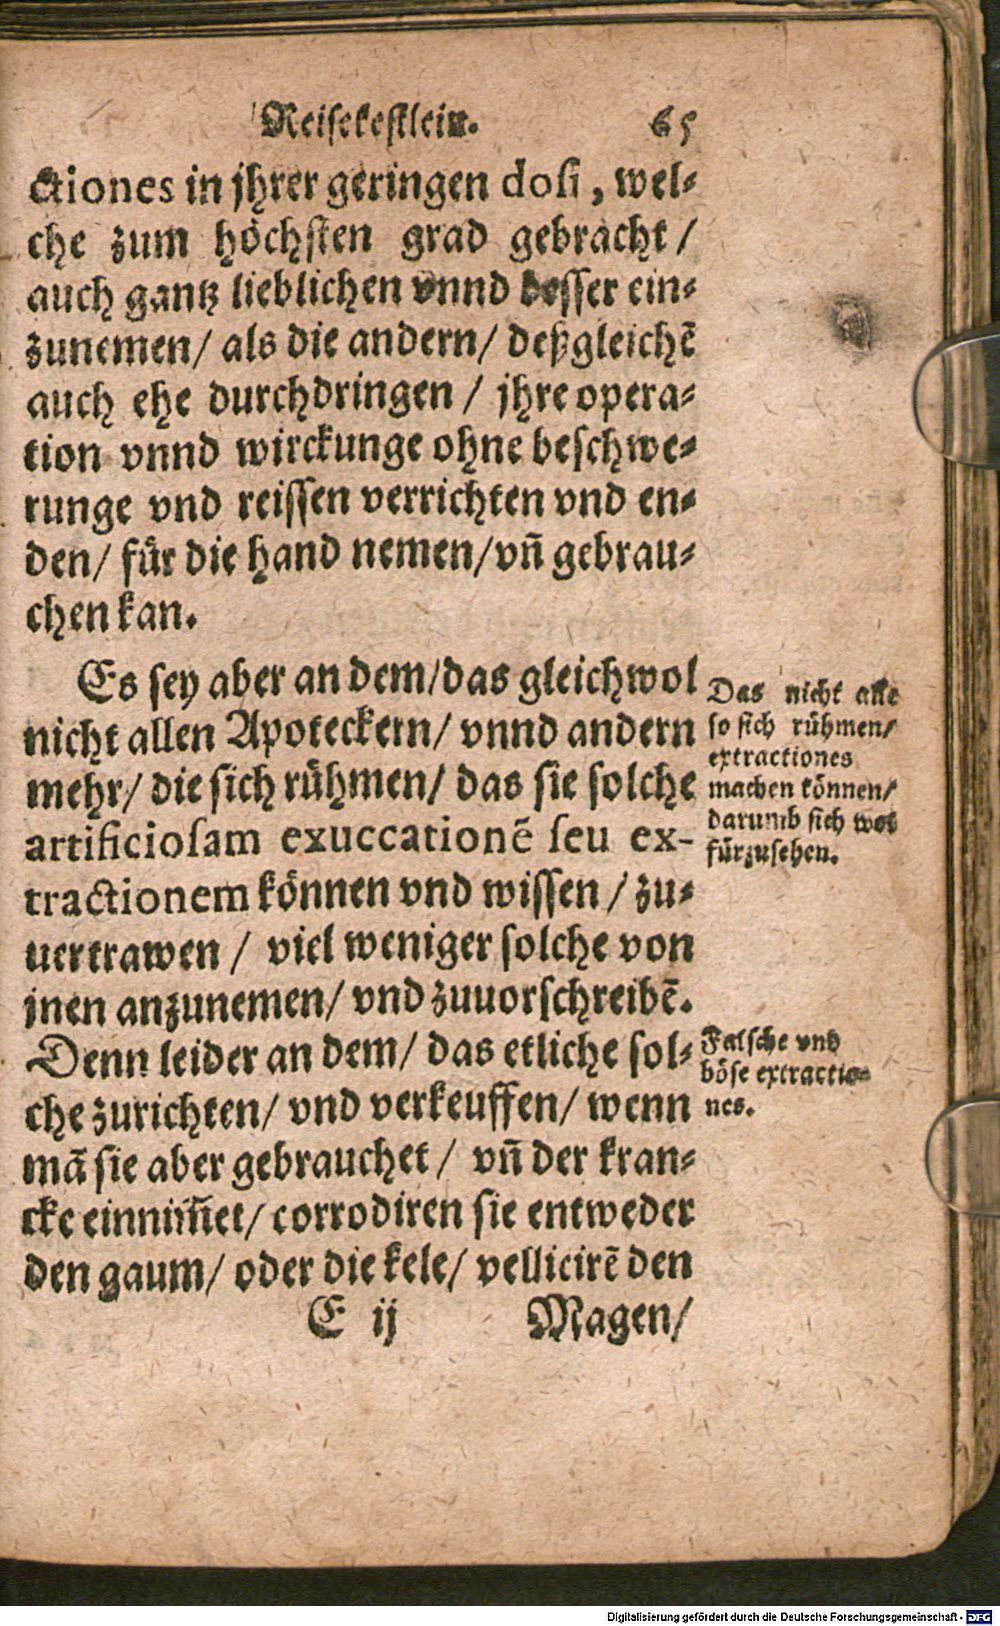 Reisekestlein. 65
ctiones in jhrer geringen dosi, wel⸗
che zum höchsten grad gebracht /
auch gantz lieblichen vnnd besser ein⸗
zunemen/ als die andern/ deßgleichẽ
auch ehe durchdringen / jhre opera⸗
tion vnnd wirckunge ohne beschwe⸗
runge vnd reissen verrichten vnd en⸗
den/ für die hand nemen/ vñ gebrau⸗
chen kan.
Es sey aber an dem/ das gleichwol
nicht allen Apoteckern/ vnnd andern
mehr/ die sich rühmen/ das sie solche
artificiosam exuccationẽ seu ex-
tractionem können vnd wissen / zu⸗
uertrawen / viel weniger solche von
jnen anzunemen/ vnd zuuorschreibẽ.
Denn leider an dem/ das etliche sol⸗
che zurichten/ vnd verkeuffen/ wenn
mã sie aber gebrauchet / vñ der kran⸗
cke einnim̃et/ corrodiren sie entweder
den gaum/ oder die kele/ vellicirẽ den
E ij Magen/
Das nicht alle
so sich rühmen/
extractiones
machen können/
darumb sich wol
fürzusehen.
Falsche vnd
böse extractio⸗
nes.
Digitalisierung gefördert durch die Deutsche Forschungsgemeinschaft - DFG